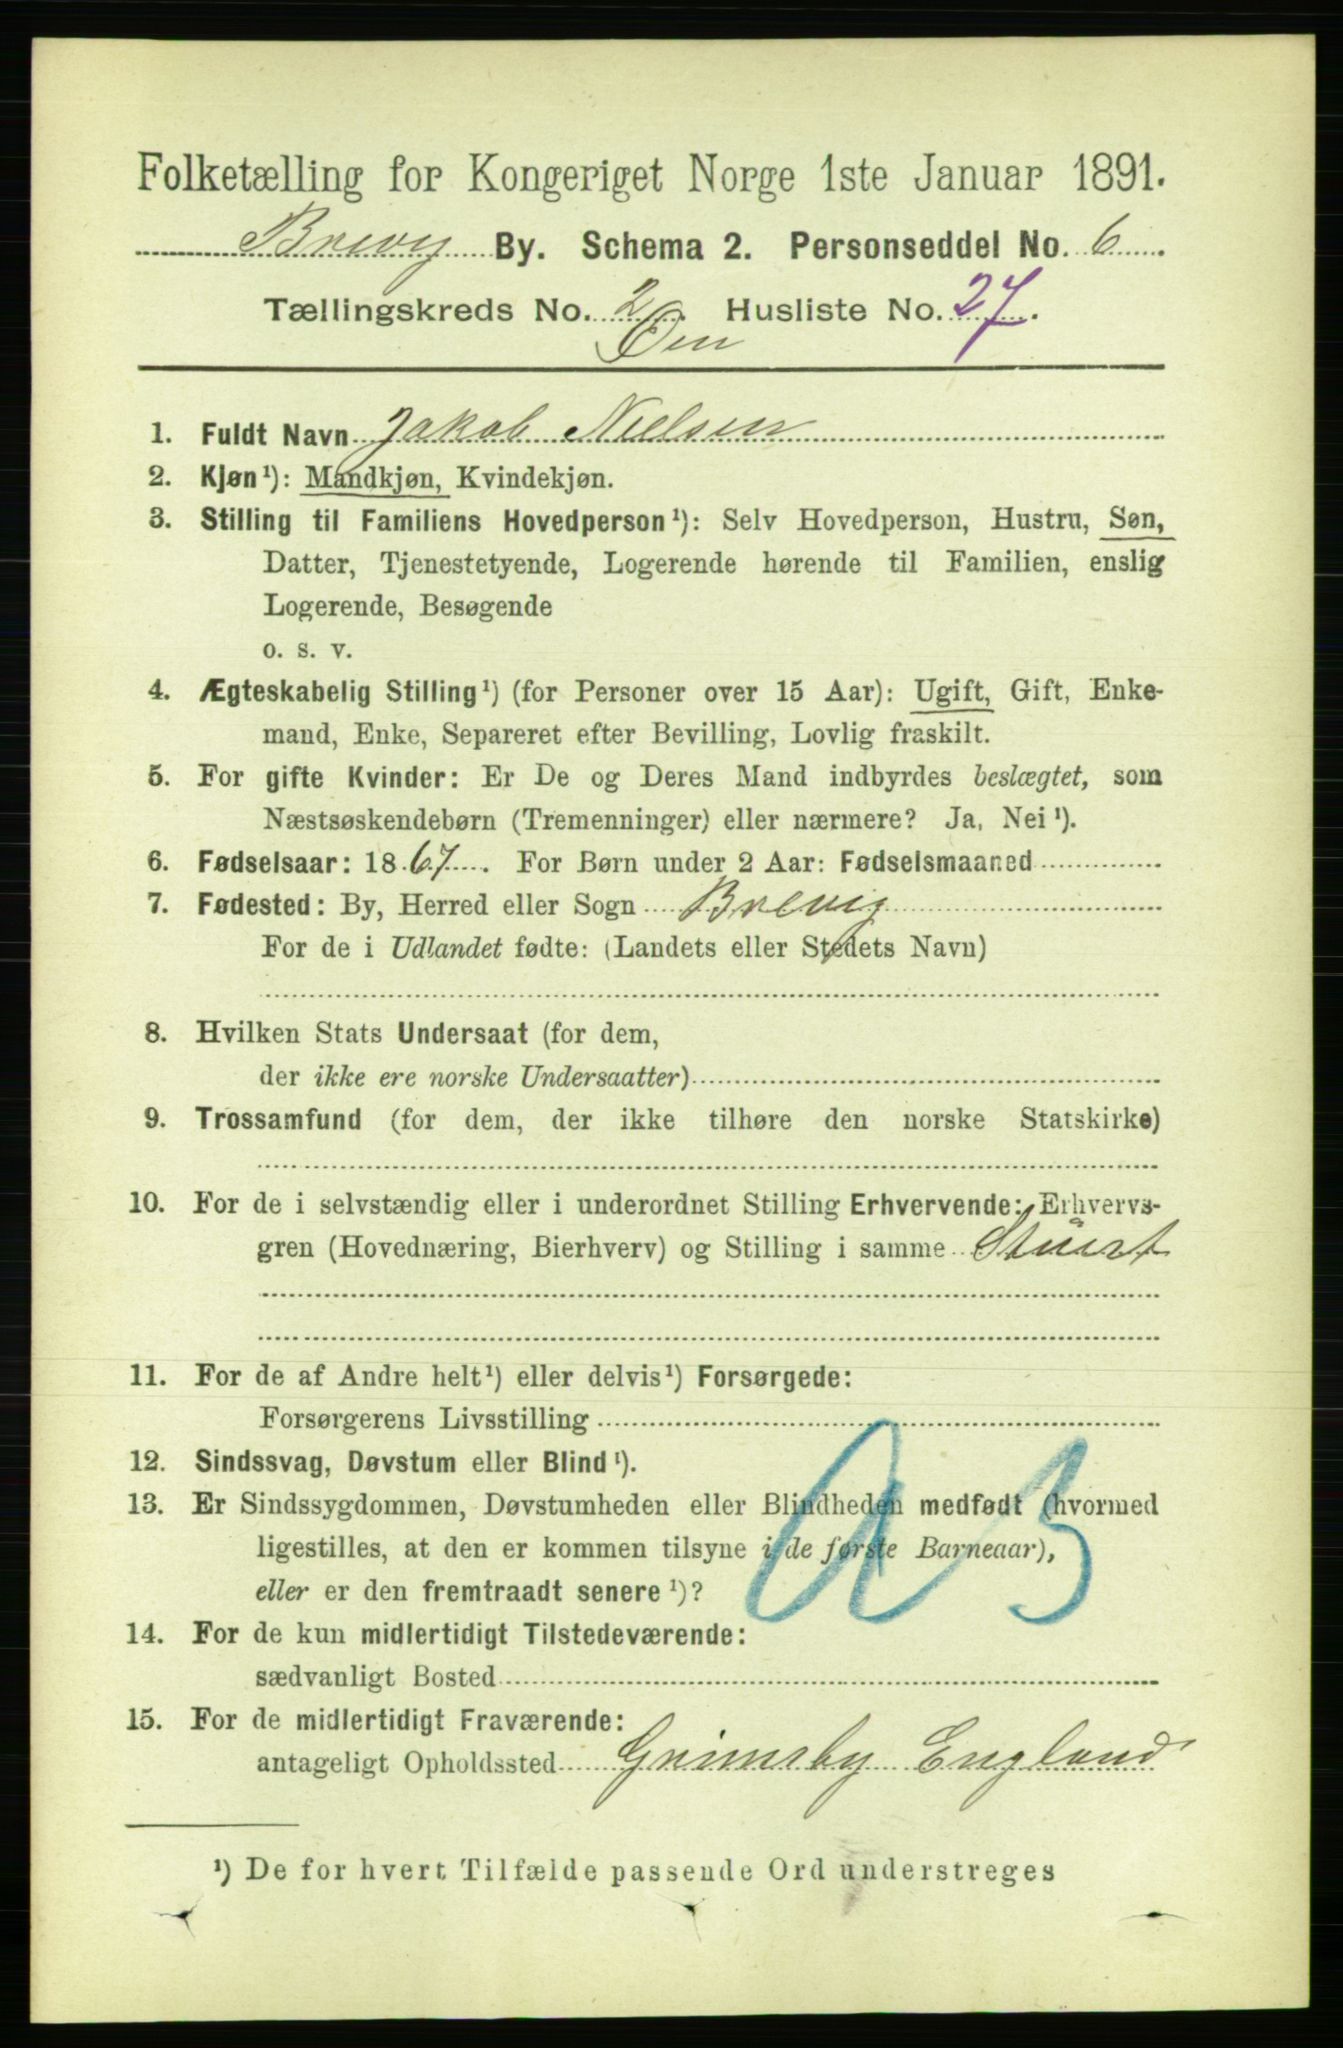 Folketælling for Kongeriget Norge 1ste Januar 1891.
Brevig By. Schema 2. Personseddel No. 6
Tællingskreds No. 2. Husliste No. 27.
Øen
1. Fuldt Navn Jakob Nielsen
2. Kjøn¹): Mandkjøn, Kvindekjøn.
3. Stilling til Familiens Hovedperson¹): Selv Hovedperson, Hustru, Søn,
Datter, Tjenestetyende, Logerende hørende til Familien, enslig
Logerende, Besøgende
o. s. v.
4. Ægteskabelig Stilling¹) (for Personer over 15 Aar): Ugift, Gift, Enke-
mand, Enke, Separeret efter Bevilling, Lovlig fraskilt.
5. For gifte Kvinder: Er De og Deres Mand indbyrdes beslægtet, som
Næstsøskendebørn (Tremenninger) eller nærmere? Ja, Nei¹).
6. Fødselsaar: 1867. For Børn under 2 Aar: Fødselsmaaned
7. Fødested: By, Herred eller Sogn Brevig
For de i Udlandet fødte: (Landets eller Stedets Navn)
8. Hvilken Stats Undersaat (for dem,
der ikke ere norske Undersaatter)
9. Trossamfund (for dem, der ikke tilhøre den norske Statskirke)
10. For de i selvstændig eller i underordnet Stilling Erhvervende: Erhvervs-
gren (Hovednæring, Bierhverv) og Stilling i samme Stuert
11. For de af Andre helt¹) eller delvis¹) Forsørgede:
Forsørgerens Livsstilling
12. Sindssvag, Døvstum eller Blind¹).
13. Er Sindssygdommen, Døvstumheden eller Blindheden medfødt (hvormed
ligestilles, at den er kommen tilsyne i de første Barneaar),
eller er den fremtraadt senere¹)?
14. For de kun midlertidigt Tilstedeværende:
sædvanligt Bosted
15. For de midlertidigt Fraværende:
antageligt Opholdssted Grimsby England
¹) De for hvert Tilfælde passende Ord understreges